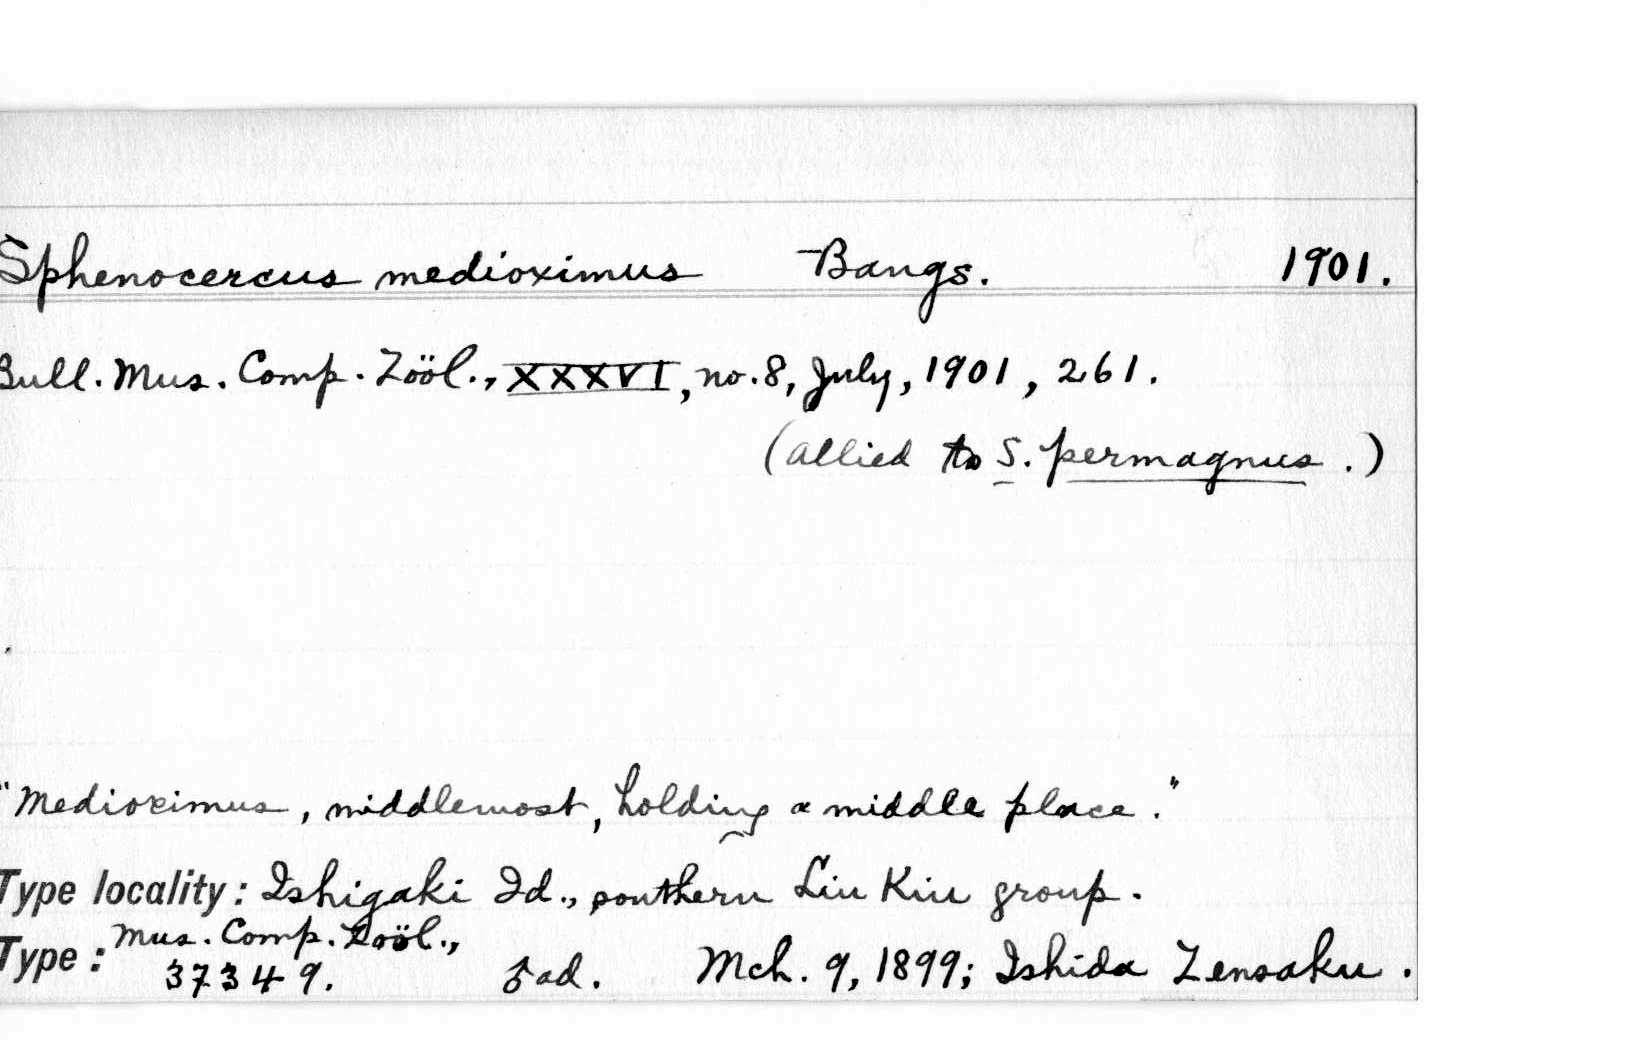 Sphenocercus medioximus Bangs. 1901.
Bull. Mus. Comp. Zoöl., XXXVI, no. 8, July, 1901, 261.
(allied to S. permagnus.)
"Medioximus, middlemost, holding a middle place."
Type locality: Ishigaki Id., southern Liu Kiu group.
Type: Mus. Comp. Zoöl.,
37349. ad. Mch. 9, 1899; Ishida Zensaku.